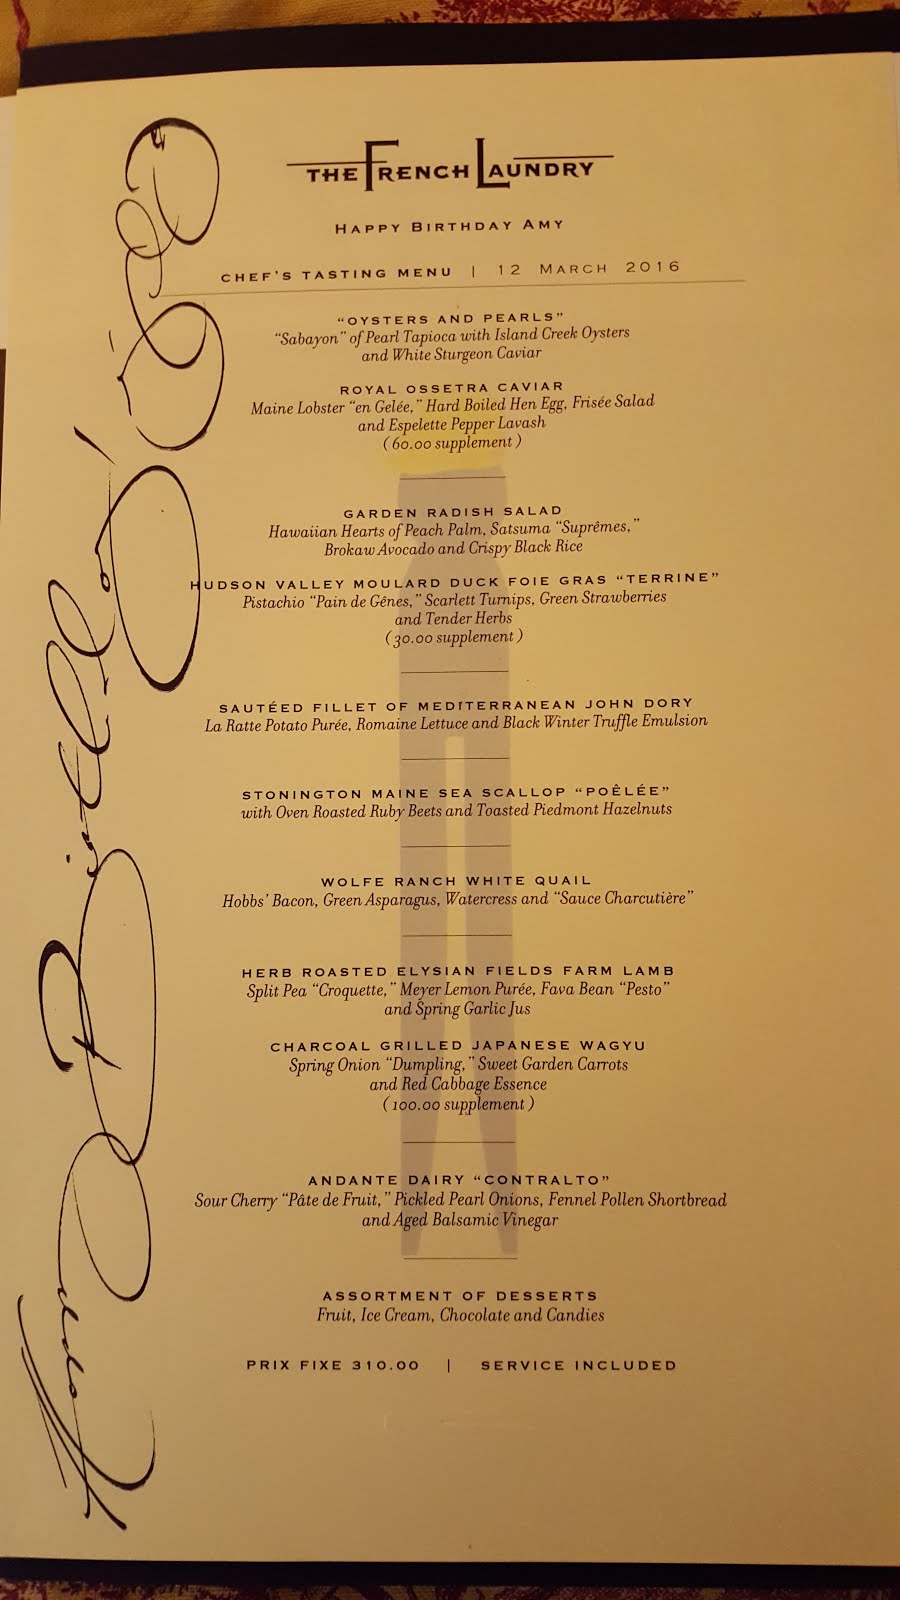 THE FRENCH LAUNDRY
HAPPY BIRTHDAY AMY
CHEF'S TASTING MENU | 12 MARCH 2016
"OYSTERS AND PEARLS"
"Sabayon" of Pearl Tapioca with Island Creek Oysters
and White Sturgeon Caviar
ROYAL OSSETRA CAVIAR
Maine Lobster "en Gelée," Hard Boiled Hen Egg, Frisée Salad
and Espelette Pepper Lavash
(60.00 supplement)
GARDEN RADISH SALAD
Hawaiian Hearts of Peach Palm, Satsuma "Suprêmes,"
Brokaw Avocado and Crispy Black Rice
HUDSON VALLEY MOULARD DUCK FOIE GRAS "TERRINE"
Pistachio "Pain de Gênes," Scarlett Turnips, Green Strawberries
and Tender Herbs
(30.00 supplement)
SAUTÉED FILLET OF MEDITERRANEAN JOHN DORY
La Ratte Potato Purée, Romaine Lettuce and Black Winter Truffle Emulsion
STONINGTON MAINE SEA SCALLOP "POÊLÉE"
with Oven Roasted Ruby Beets and Toasted Piedmont Hazelnuts
WOLFE RANCH WHITE QUAIL
Hobbs' Bacon, Green Asparagus, Watercress and "Sauce Charcutière"
HERB ROASTED ELYSIAN FIELDS FARM LAMB
Split Pea "Croquette," Meyer Lemon Purée, Fava Bean "Pesto"
and Spring Garlic Jus
CHARCOAL GRILLED JAPANESE WAGYU
Spring Onion "Dumpling," Sweet Garden Carrots
and Red Cabbage Essence
(100.00 supplement)
ANDANTE DAIRY "CONTRALTO"
Sour Cherry "Pâte de Fruit," Pickled Pearl Onions, Fennel Pollen Shortbread
and Aged Balsamic Vinegar
ASSORTMENT OF DESSERTS
Fruit, Ice Cream, Chocolate and Candies
PRIX FIXE 310.00 | SERVICE INCLUDED